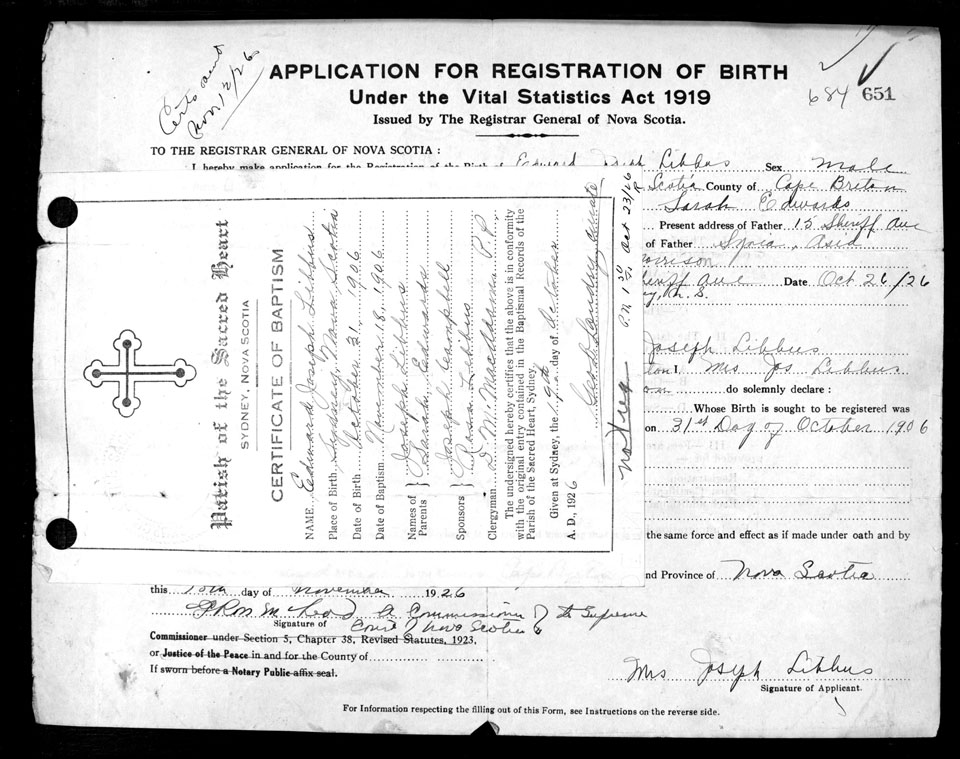 Certs sent
Nov 12/26
APPLICATION FOR REGISTRATION OF BIRTH
Under the Vital Statistics Act 1919
Issued by The Registrar General of Nova Scotia.
684 651
TO THE REGISTRAR GENERAL OF NOVA SCOTIA :
I hereby make application for the Registration of the Birth of Edward Joseph Libbus Sex Male
Scotia County of Cape Breton
Sarah Edwards
Present address of Father 15 Sheriff Ave
of Father Syria, Asia
Morrison
Sheriff Ave Date Oct 26/26
N. S.
Joseph Libbus
I. Mrs Jos Libbus
do solemnly declare :
Whose Birth is sought to be registered was
on 31st Day of October 1906
the same force and effect as if made under oath and by
nd Province of Nova Scotia
this 10th day of November 1926
A Commissioner of the Supreme
Signature of Court of Nova Scotia
Commissioner under Section 5, Chapter 38, Revised Statutes, 1923.
or Justice of the Peace in and for the County of
If sworn before a Notary Public affix seal.
Mrs Joseph Libbus
Signature of Applicant.
For Information respecting the filling out of this Form, see Instructions on the reverse side.
Parish of the Sacred Heart
SYDNEY, NOVA SCOTIA
CERTIFICATE OF BAPTISM
NAME Edward Joseph Libbus
Place of Birth Sydney, Nova Scotia
Date of Birth October 31, 1906
Date of Baptism November 18, 1906
Names of Parents } Joseph Libbus
Sarah Edwards
Sponsors } Joseph Campbell
Rosa Libbus
Clergyman D. M. MacAdam P.P.
The undersigned hereby certifies that the above is in conformity
with the original entry contained in the Baptismal Records of the
Parish of the Sacred Heart, Sydney.
Given at Sydney, the 9th day of October
A. D., 1926
Geo B Landry, Curate
not reg
Oct 23/26